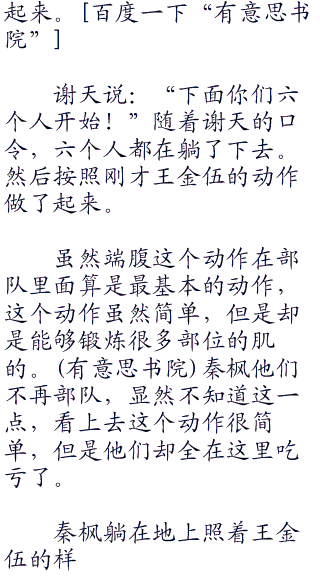 起来。[百度一下“有意思书
院”]
谢天说：“下面你们六
个人开始！”随着谢天的口
令，六个人都在躺了下去。
然后按照刚才王金伍的动作
做了起来。
虽然端腹这个动作在部
队里面算是最基本的动作，
这个动作虽然简单，但是却
是能够锻炼很多部位的肌
的。(有意思书院)秦枫他们
不再部队，显然不知道这一
点，看上去这个动作很简
单，但是他们却全在这里吃
亏了。
秦枫躺在地上照着王金
伍的样